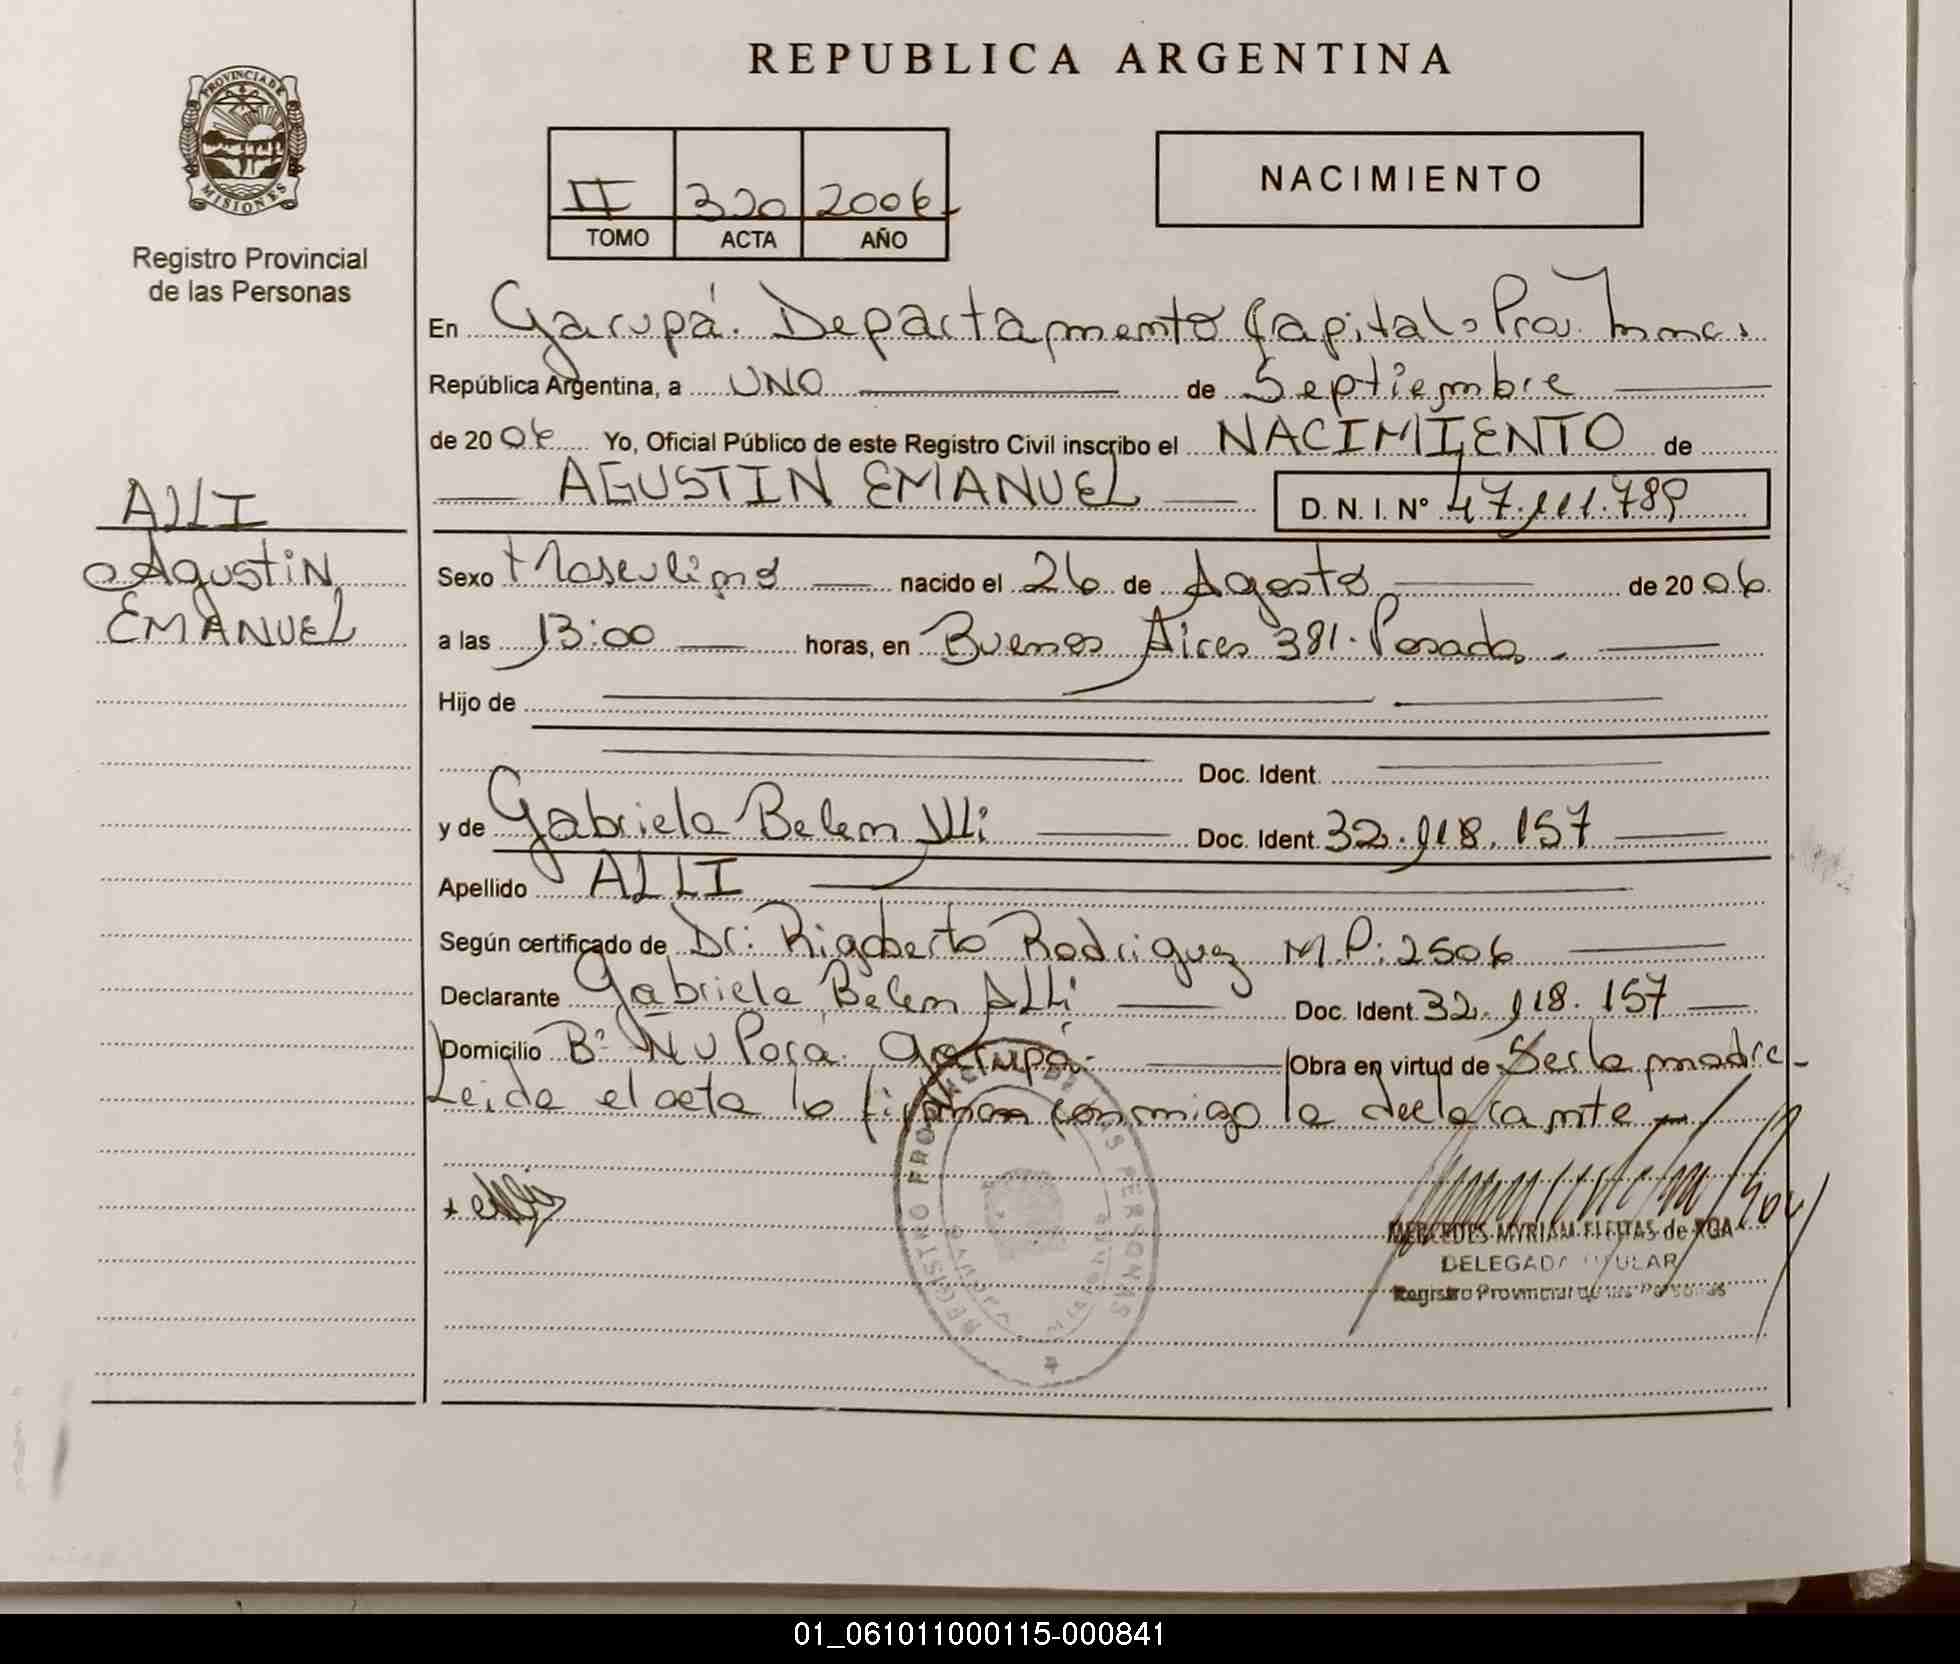 REPUBLICA ARGENTINA
PROVINCIA DE
MISIONES
Registro Provincial
de las Personas
II 320 2006
TOMO ACTA AÑO
NACIMIENTO
En Garupá. Departamento Capital. Prov. Mnes.
República Argentina, a UNO de Septiembre
de 2006 Yo, Oficial Público de este Registro Civil inscribo el NACIMIENTO de
AGUSTIN EMANUEL D. N. I. N° 47.111.789
ALLI
Agustin
EMANUEL
Sexo Masculino nacido el 26 de Agosto de 2006.
a las 13:00 horas, en Buenos Aires 381. Posadas.
Hijo de
Doc. Ident.
y de Gabriela Belen Alli Doc. Ident. 32.118.157
Apellido ALLI
Según certificado de Dr: Rigoberto Rodriguez M.P: 2506
Declarante Gabriela Belen Alli Doc. Ident. 32.118.157
Domicilio B° Ñu Pora. Garupá. Obra en virtud de Ser la madre
Leida el acta la firman conmigo la declarante
REGISTRO PROVINCIAL DE LAS PERSONAS
GARUPA MISIONES
MERCEDES MYRIAM FLEITAS de ROA
DELEGADA TITULAR
Registro Provincial de las Personas
01_061011000115-000841